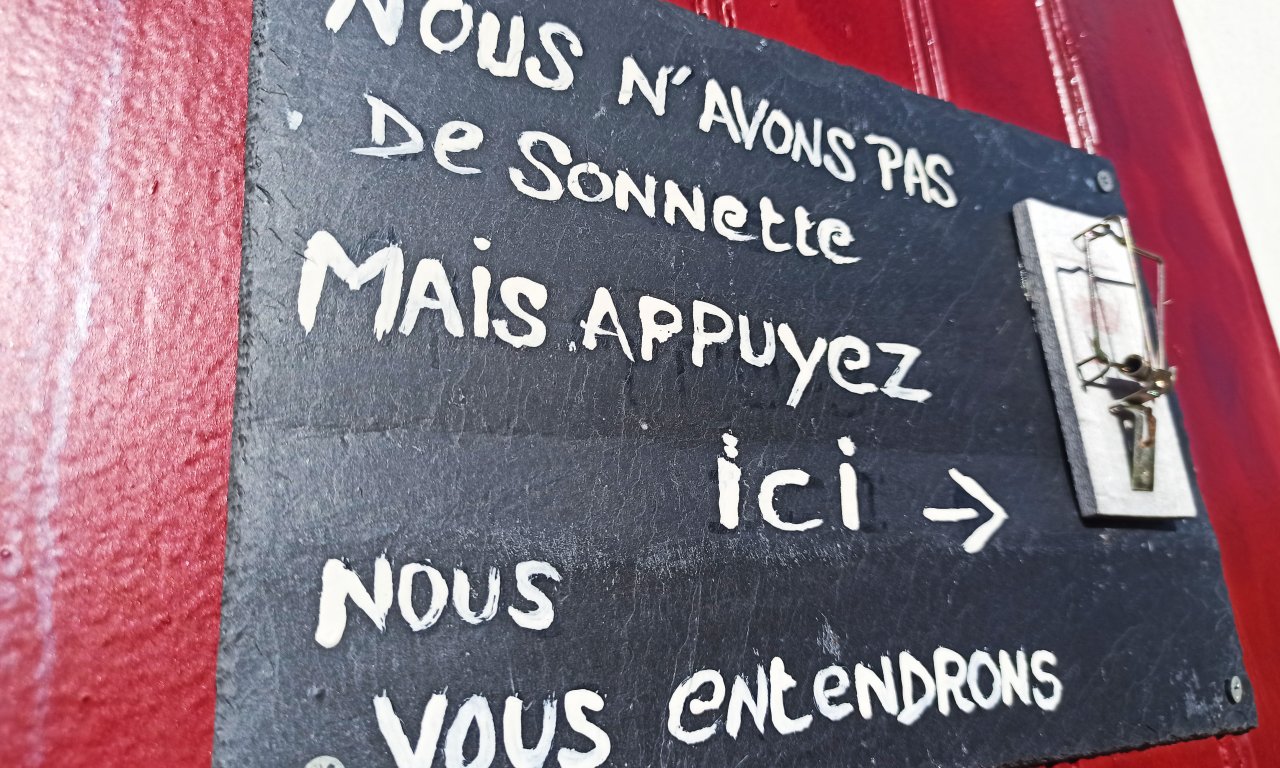 NOUS N'AVONS PAS
De SONNette
MAiS APPUYez
ici →
NOUS
VOUS eNteNDRONS